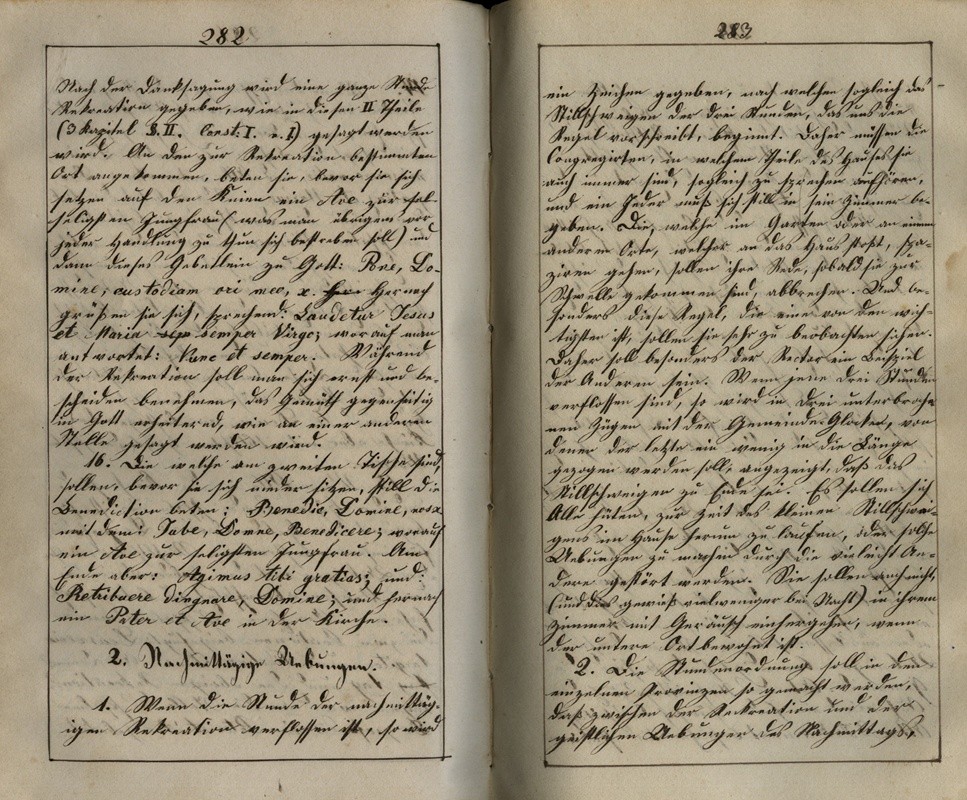 282
Nach der Danksagung wird eine ganze Stunde
Rekreation gegeben, wie in diesen II Theile
(3 Kapitel §. II. Const: I. n. 1) gesagt werden
wird. An den zur Rekreation bestimmten
Ort angekommen, beten sie, bevor sie sich
setzen auf den Knien ein Ave zur
seligsten Jungfrau (was man übrigens vor
jeder Handlung zu thun sich bestreben soll) und
dann dieses Gebetlein zu Gott: Pone, Do-
mine, custodiam ori meo, x. Hernach
grüßen sie sich, sprechend: Laudetur Jesus
et Maria semper Virgo; worauf man
antwortet: Nunc et semper. Während
der Rekreation soll man sich ernst und be-
scheiden benehmen, das Gemüth gegenseitig
in Gott erheiternd, wie an einer anderen
Stelle gesagt werden wird.
16. Die welche am zweiten Tische sind,
sollen, bevor sie sich nieder sitzen, still die
Benediction beten: Benedic, Domine, nos x
mit dem: Jube, Domne, Benedicere; worauf
ein Ave zur seligsten Jungfrau. Am
Ende aber: Agimus tibi gratias; und:
Retribuere dingnare, Domine; und hernach
ein Pater et Ave in der Kirche.
2. Nachmittägige Uebungen.
1. Wenn die Stunde der nachmittäg-
igen Rekreation verflossen ist, so wird
283
ein Zeichen gegeben, nach welchen sogleich das
Stillschweigen der drei Stunden, das uns die
Regel vorschreibt, beginnt. Daher müssen die
Congregirten, in welchem Theile des Hauses sie
auch immer sind, sogleich zu sprechen aufhören,
und ein Jeder muß sich still in sein Zimmer be-
geben. Die, welche im Garten oder an einem
anderem Orte, welcher an das Haus stoßt, spa-
ziren gehen, sollen ihre Rede, sobald sie zur
Schwelle gekommen sind, abbrechen. Und be-
sonders diese Regel, die eine von den wich-
tigsten ist, sollen sie sehr zu beobachten suchen.
Daher soll besonders der Rector ein Beispiel
der Anderen sein. Wenn jene drei Stunden
verflossen sind, so wird in drei unterbroche
nen Zügen mit der Gemeinde Glocke, von
denen der letzte ein wenig in die Länge
gezogen werden soll, angezeigt, daß das
Stillschweigen zu Ende sei. Es sollen sich
Alle hüten, zur Zeit des kleinen Stillschwei-
gens im Hause herum zu laufen, oder solche
Uebungen zu machen durch die vieleicht An-
dere gestört werden. Sie sollen auch nicht,
(und das gewiß vielweniger bei Nacht) in ihrem
Zimmer mit Geräusch einhergehen, wenn
der untere Ort bewohnt ist.
2. Die Stundenordnung soll in den
einzelnen Provinzen so gemacht werden,
daß zwischen der Rekreation und der
geistlichen Uebungen des Nachmittags,